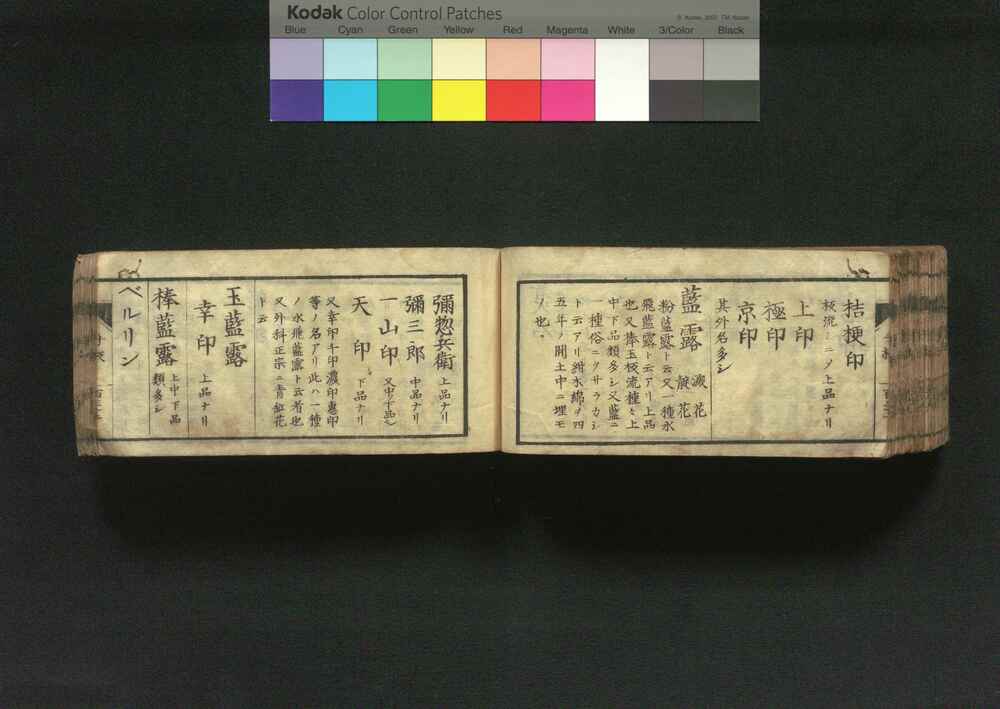 Kodak Color Control Patches
© Kodak, 2007 TM: Kodak
Blue Cyan Green Yellow Red Magenta White 3/Color Black
桔梗印
板流 ニノ上品ナリ
上印
極印
京印
其外名多シ
藍露 澱花 靛花
粉藍露ト云又一種水
飛藍露ト云アリ上品
也又棒玉板流種々上
中下品類多シ又藍ニ
一種俗ニクサラカシ
ト云アリ紺水綿ヲ四
五年ノ間土中ニ埋モ
ノ也
彌惣兵衛 上品ナリ
彌三郎 中品ナリ
一山印 又中下品
天印 下品ナリ
又幸印千印濃印惠印
等ノ名アリ此ハ一種
ノ水飛藍露ト云者也
又外科正宗ニ青缸花
ト云
玉藍露
幸印 上品ナリ
棒藍露 上中下品類多シ
ベルリン